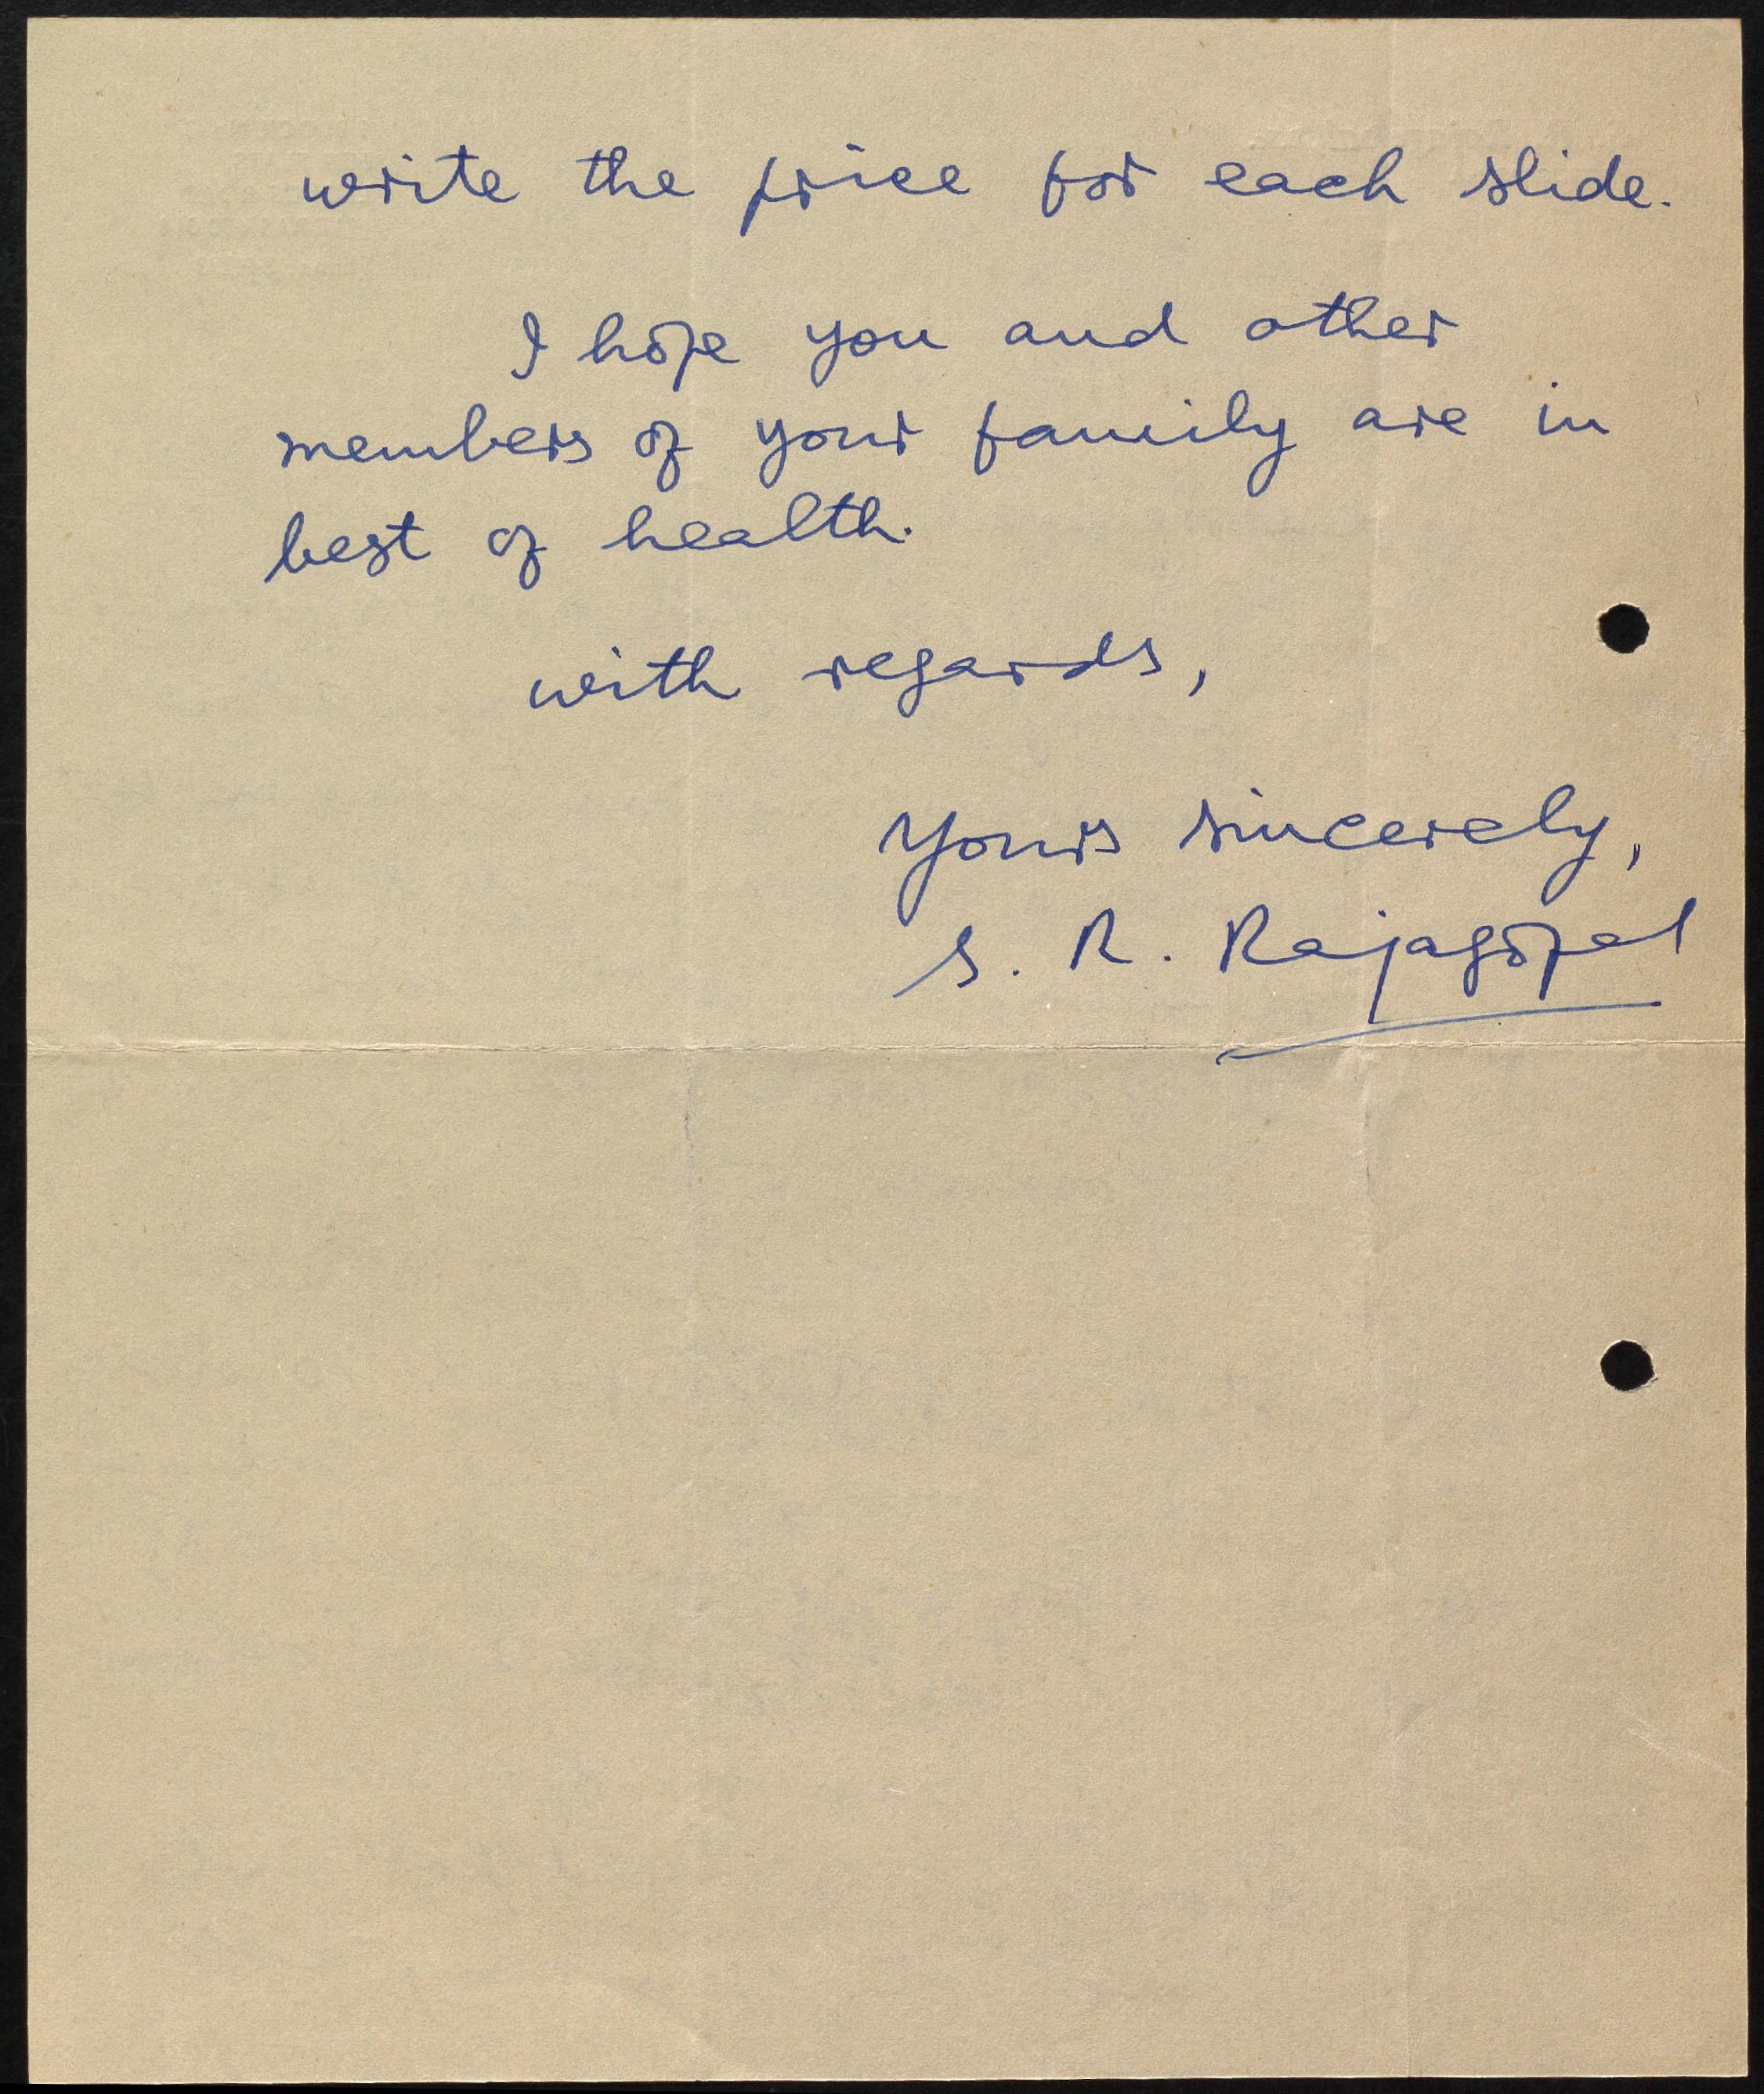 write the price for each slide.
I hope you and other
members of your family are in
best of health.
with regards,
Yours sincerely,
S. R. Rajagopal